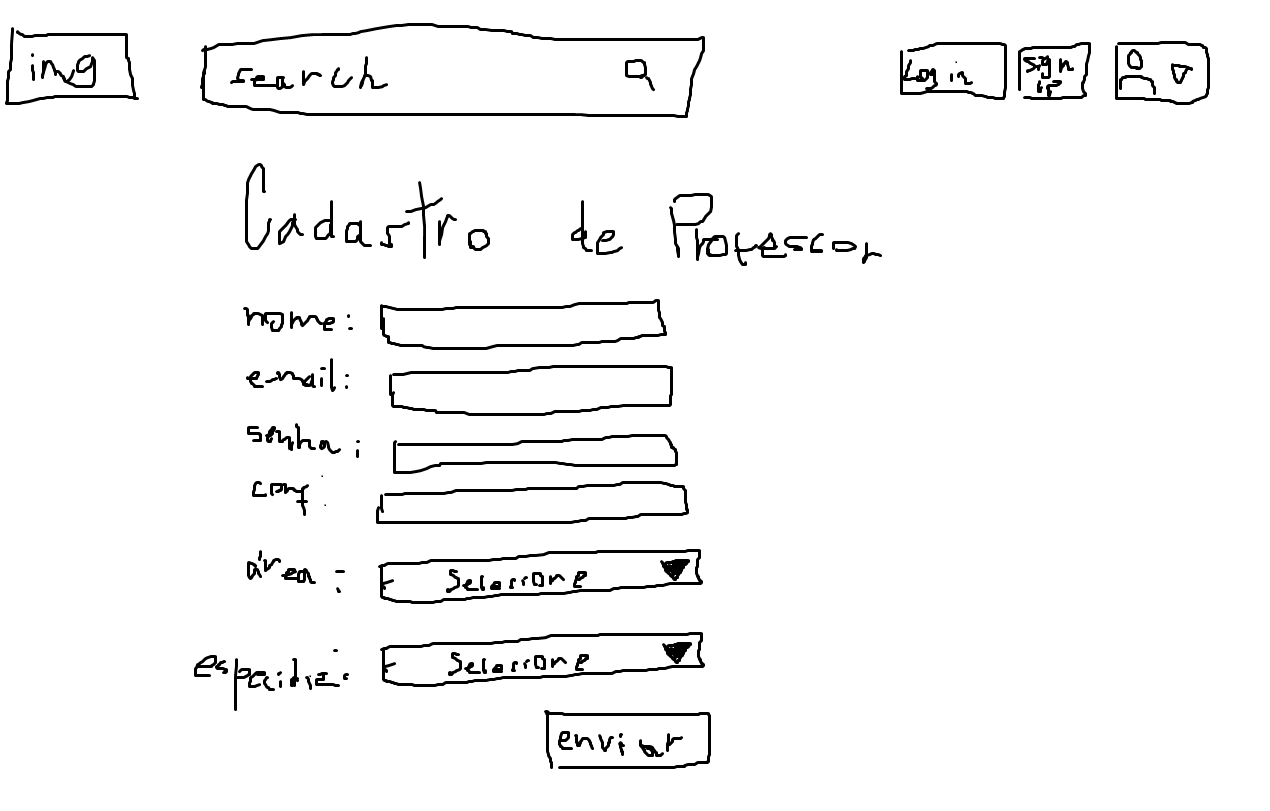 img search Log in sign up
Cadastro de Professor
nome:
e-mail:
senha:
conf:
área: Selecione
Selecione
enviar